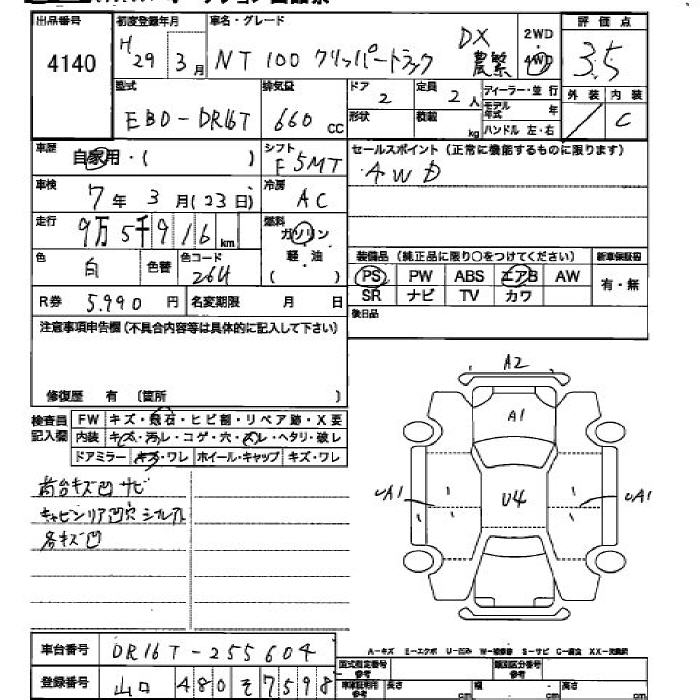 出品番号 初度登録年月 車名・グレード 評価点
4140 H29 3月 NT100 クリッパートラック DX 農繁 2WD 4WD 3.5
型式 排気量 ドア 定員 ディーラー・並行 外装 内装
EBD-DR16T 660 CC 2 2人 モデル年式 年 C
形状 積載 kg ハンドル 左・右
車歴 自家用・( ) シフト F5MT セールスポイント(正常に機能するものに限ります)
車検 7年 3月(23日) 冷房 AC AWD
走行 9万5千916km 燃料 ガソリン
軽・油
( )
色 白 色替 色コード 26U 装備品(純正品に限り○をつけてください) 新車保証書
PS PW ABS エアB AW 有・無
R券 5.990円 名変期限 月 日 SR ナビ TV カワ
後日品
注意事項申告欄(不具合内容等は具体的に記入して下さい)
修復歴 有 (箇所 )
検査員記入欄 FW キズ・飛石・ヒビ割・リペア跡・X要
内装 キズ・汚れ・コゲ・穴・ズレ・ヘタリ・破レ
ドアミラー キズ・ワレ ホイール・キャップ キズ・ワレ
A2
A1
UA1 U4 UA1
荷台キズ凹 サビ
キャビンリア凹穴
各キズ凹
A-キズ E-エクボ U-凹み W-補修跡 S-サビ C-腐食 XX-交換済
車台番号 DR16T-255604
型式指定番号 類別区分番号
登録番号 山口 480 そ 7598
車庫証明用参考 長さ cm 幅 cm 高さ cm